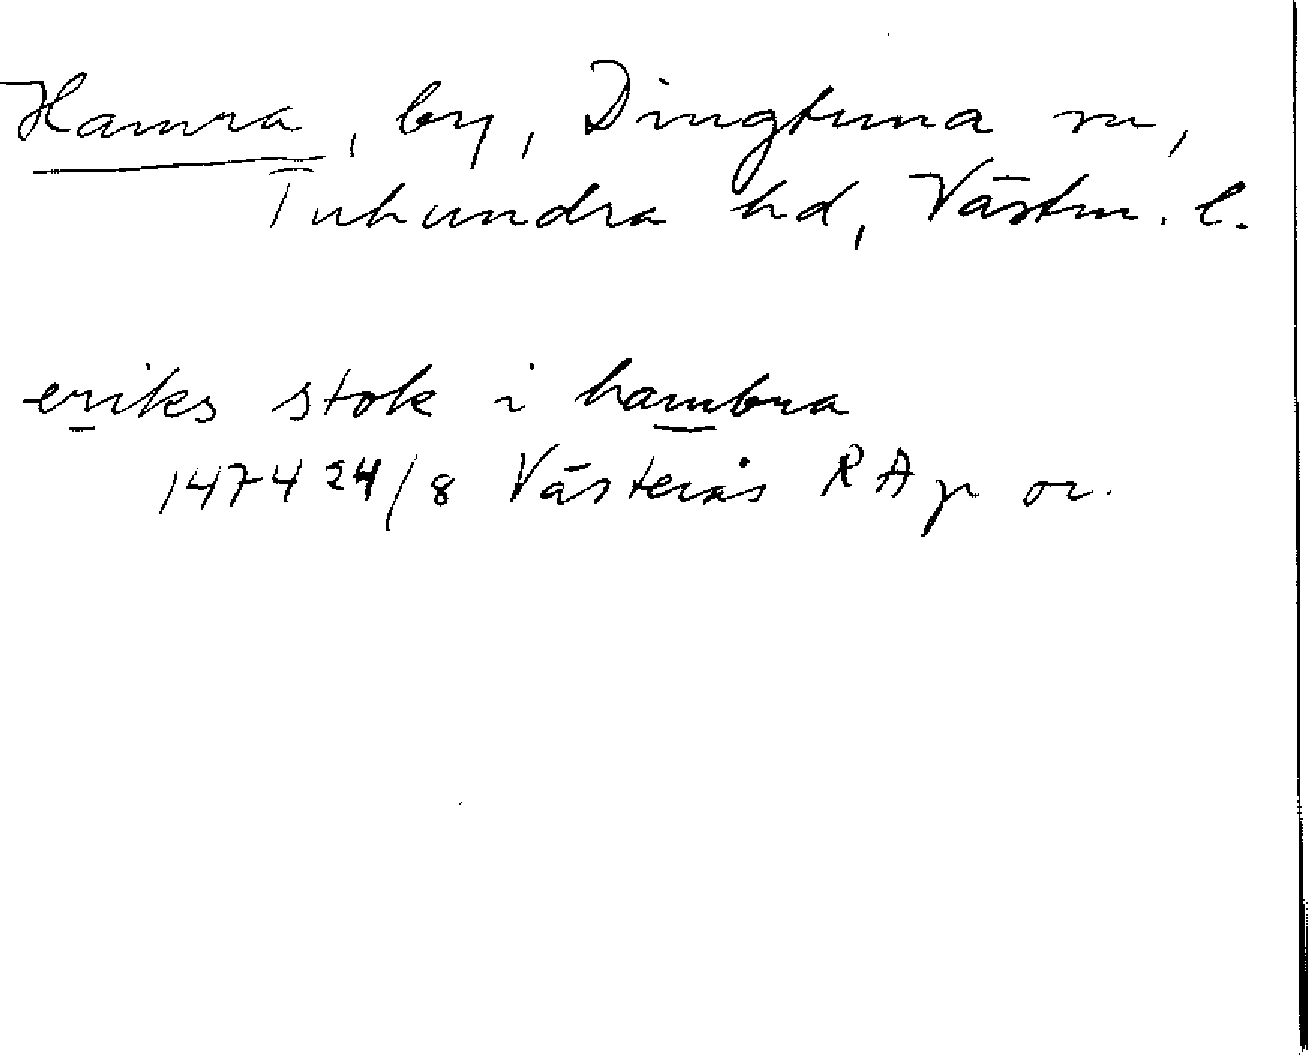 Hamra, by, Dingtuna sn,
Tuhundra hd, Västm. l.
eriks stok i hambra
1474 24/8 Västerås RAp or.